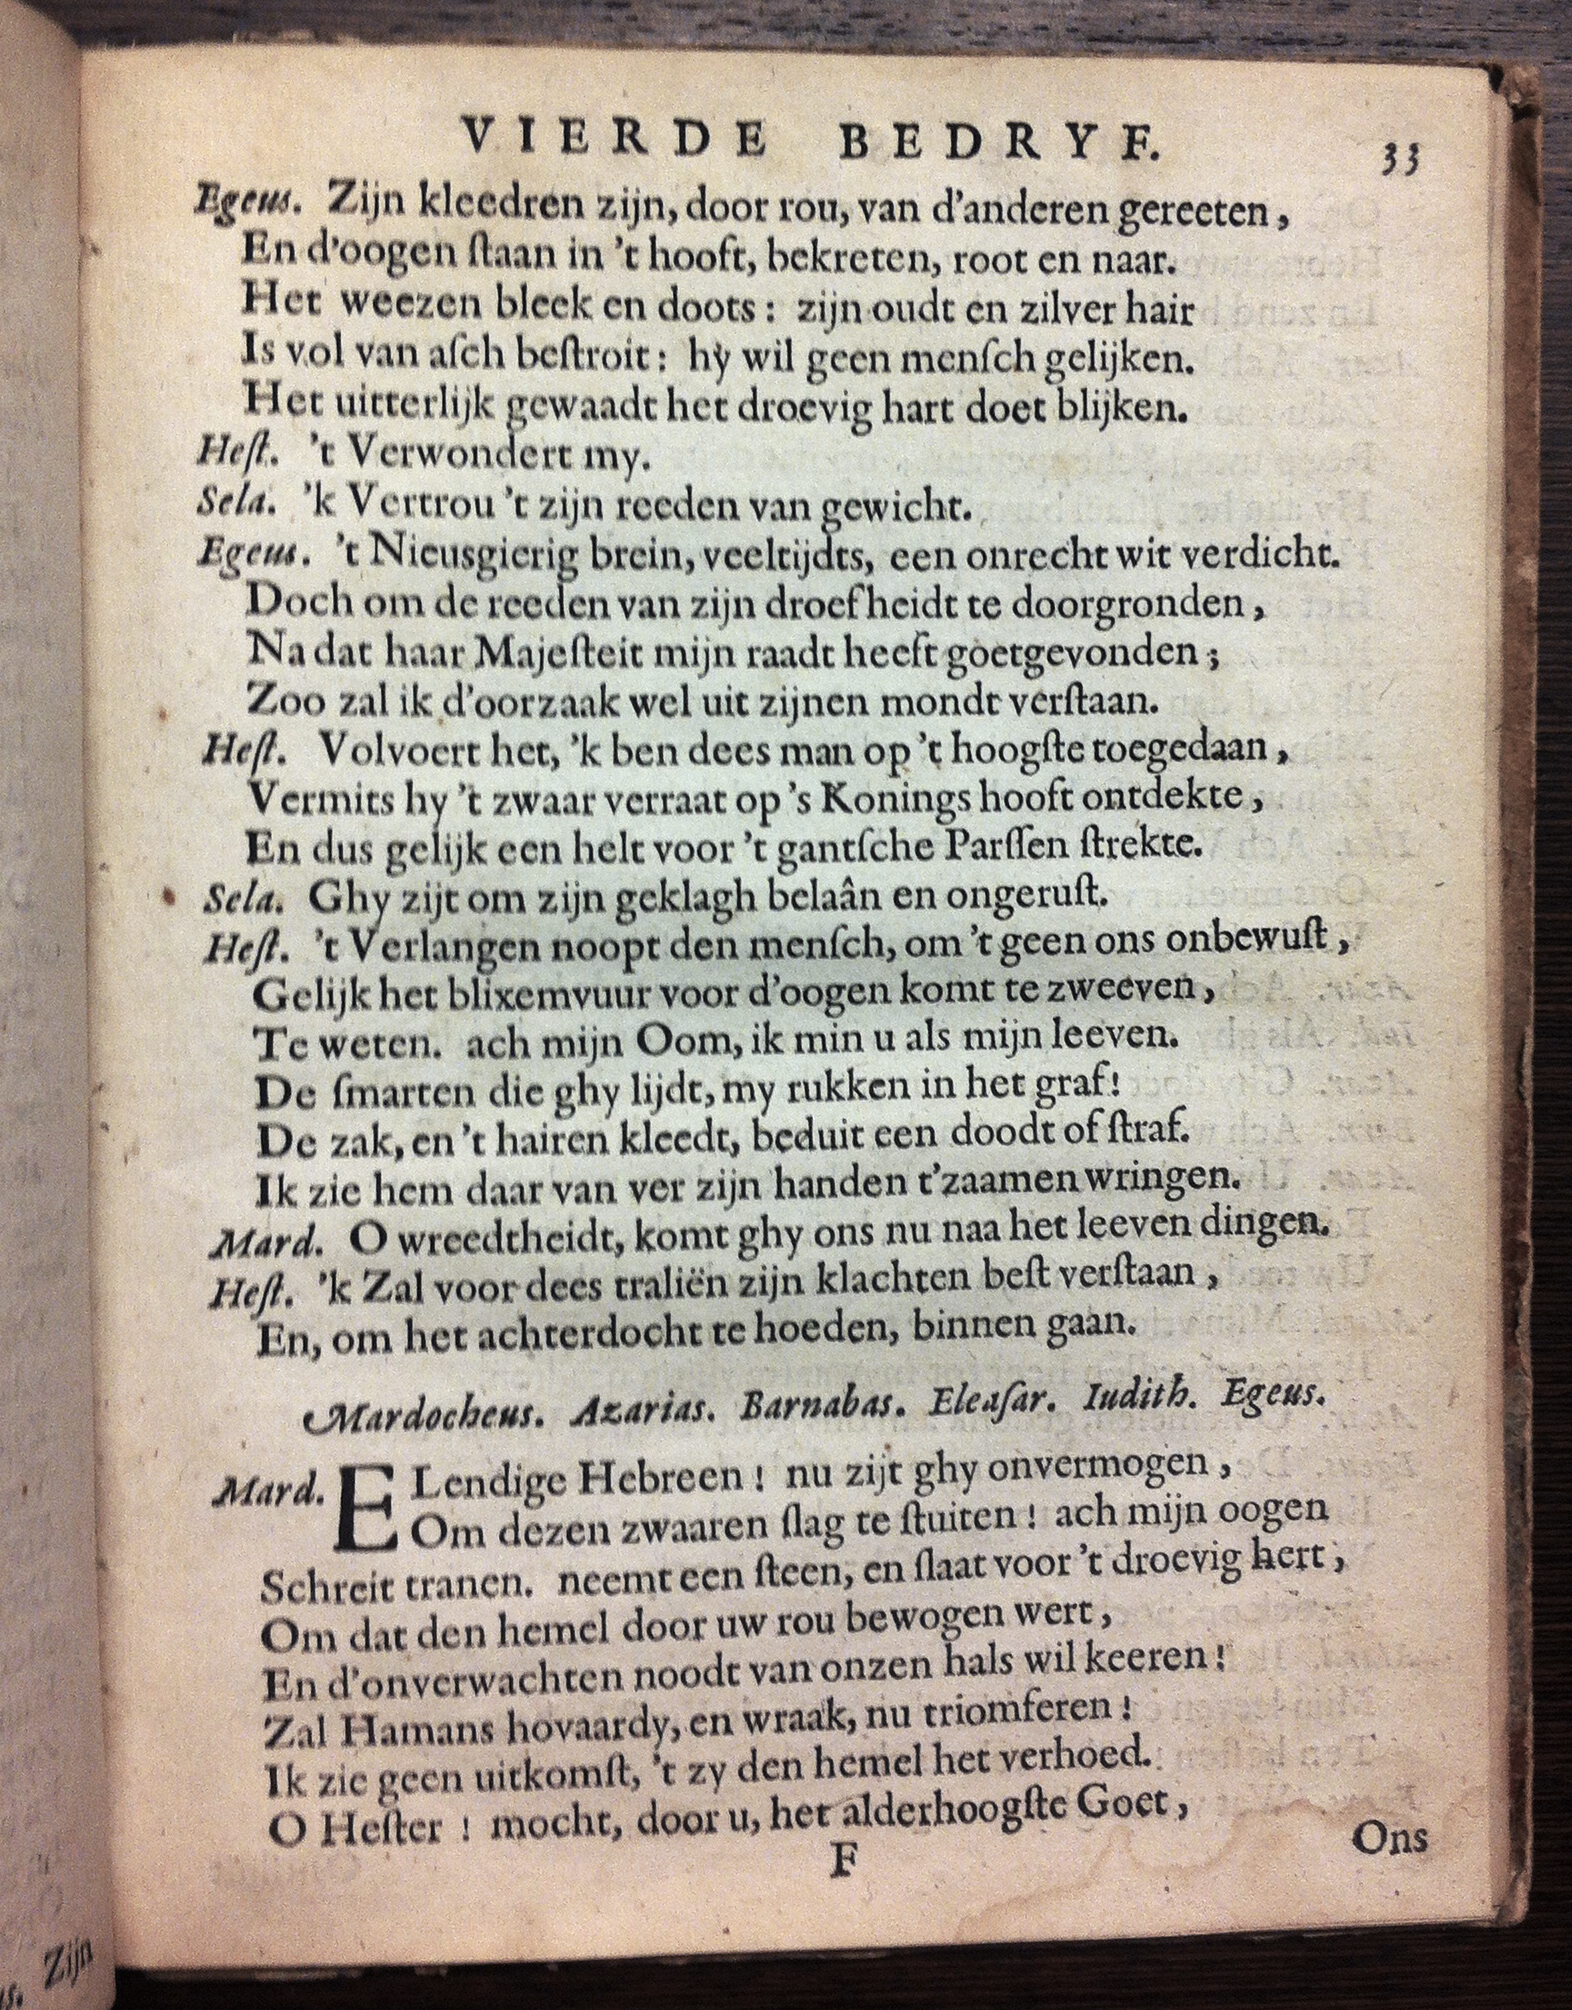 VIERDE BEDRYF. 33
Egeus. Zijn kleedren zijn, door rou, van d'anderen gereeten,
En d'oogen ſtaan in 't hooft, bekreten, root en naar.
Het weezen bleek en doots: zijn oudt en zilver hair
Is vol van aſch beſtroit: hy wil geen menſch gelijken.
Het uitterlijk gewaadt het droevig hart doet blijken.
Heſt. 't Verwondert my.
Sela. 'k Vertrou 't zijn reeden van gewicht.
Egeus. 't Nieusgierig brein, veeltijdts, een onrecht wit verdicht.
Doch om de reeden van zijn droefheidt te doorgronden,
Na dat haar Majeſteit mijn raadt heeft goetgevonden;
Zoo zal ik d'oorzaak wel uit zijnen mondt verſtaan.
Heſt. Volvoert het, 'k ben dees man op 't hoogſte toegedaan,
Vermits hy 't zwaar verraat op 's Konings hooft ontdekte,
En dus gelijk een helt voor 't gantſche Parſſen ſtrekte.
Sela. Ghy zijt om zijn geklagh belaân en ongeruſt.
Heſt. 't Verlangen noopt den menſch, om 't geen ons onbewuſt,
Gelijk het blixemvuur voor d'oogen komt te zweeven,
Te weten. ach mijn Oom, ik min u als mijn leeven.
De ſmarten die ghy lijdt, my rukken in het graf!
De zak, en 't hairen kleedt, beduit een doodt of ſtraf.
Ik zie hem daar van ver zijn handen t'zaamen wringen.
Mard. O wreedtheidt, komt ghy ons nu naa het leeven dingen.
Heſt. 'k Zal voor dees traliën zijn klachten beſt verſtaan,
En, om het achterdocht te hoeden, binnen gaan.
Mardocheus. Azarias. Barnabas. Eleaſar. Iudith. Egeus.
Mard. ELendige Hebreen! nu zijt ghy onvermogen,
Om dezen zwaaren ſlag te ſtuiten! ach mijn oogen
Schreit tranen. neemt een ſteen, en ſlaat voor 't droevig hert,
Om dat den hemel door uw rou bewogen wert,
En d'onverwachten noodt van onzen hals wil keeren!
Zal Hamans hovaardy, en wraak, nu triomferen!
Ik zie geen uitkomſt, 't zy den hemel het verhoed.
O Heſter! mocht, door u, het alderhoogſte Goet,
F Ons
Zijn